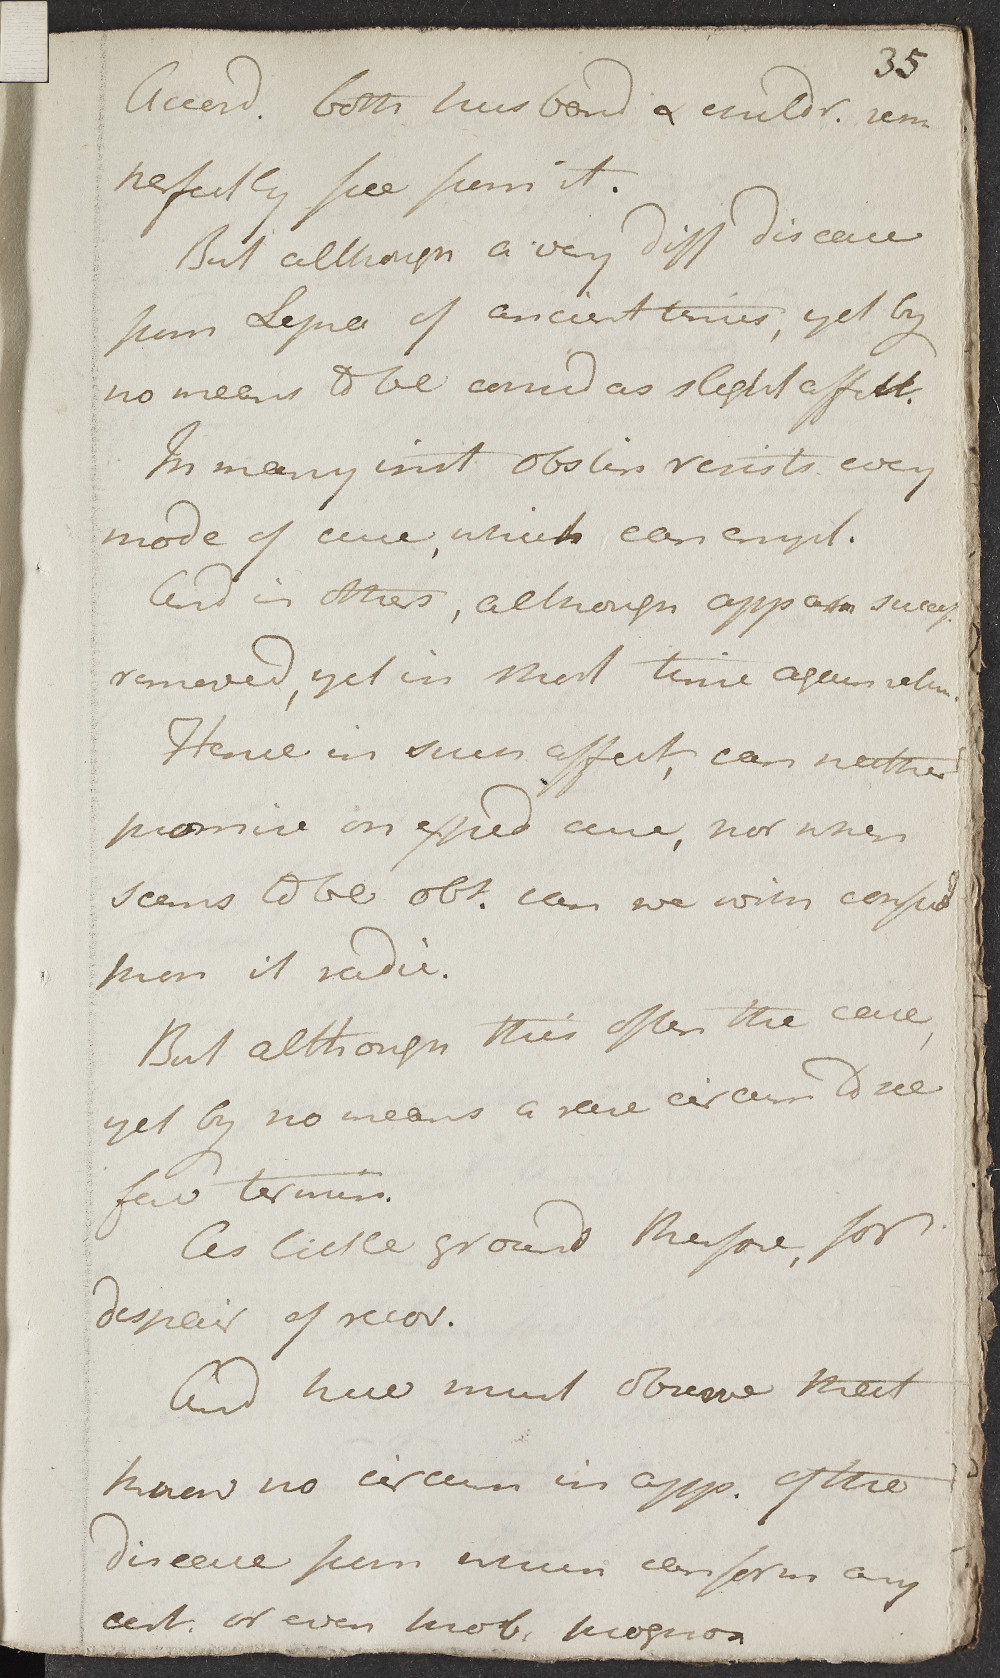 35
Accord. both husband & childr. rem
perfectly free from it.
But although a very diff disease
from Lepra of ancient times, yet by
no means to be consid as slight affect.
In many inst obstin resists every
mode of cure, which can empl.
And in others, although appar succesf.
removed, yet in short time again return.
Hence in such affect, can neither
promise an exped cure, nor when
seems to be obt. can we with confid
pron it radic.
But although this often the case,
yet by no means a rare circum to see
fav termin.
As little ground therefore, for
despair of recov.
And here must observe that
know no circum in app. of the
disease from which can form any
cert. or even prob. prognos